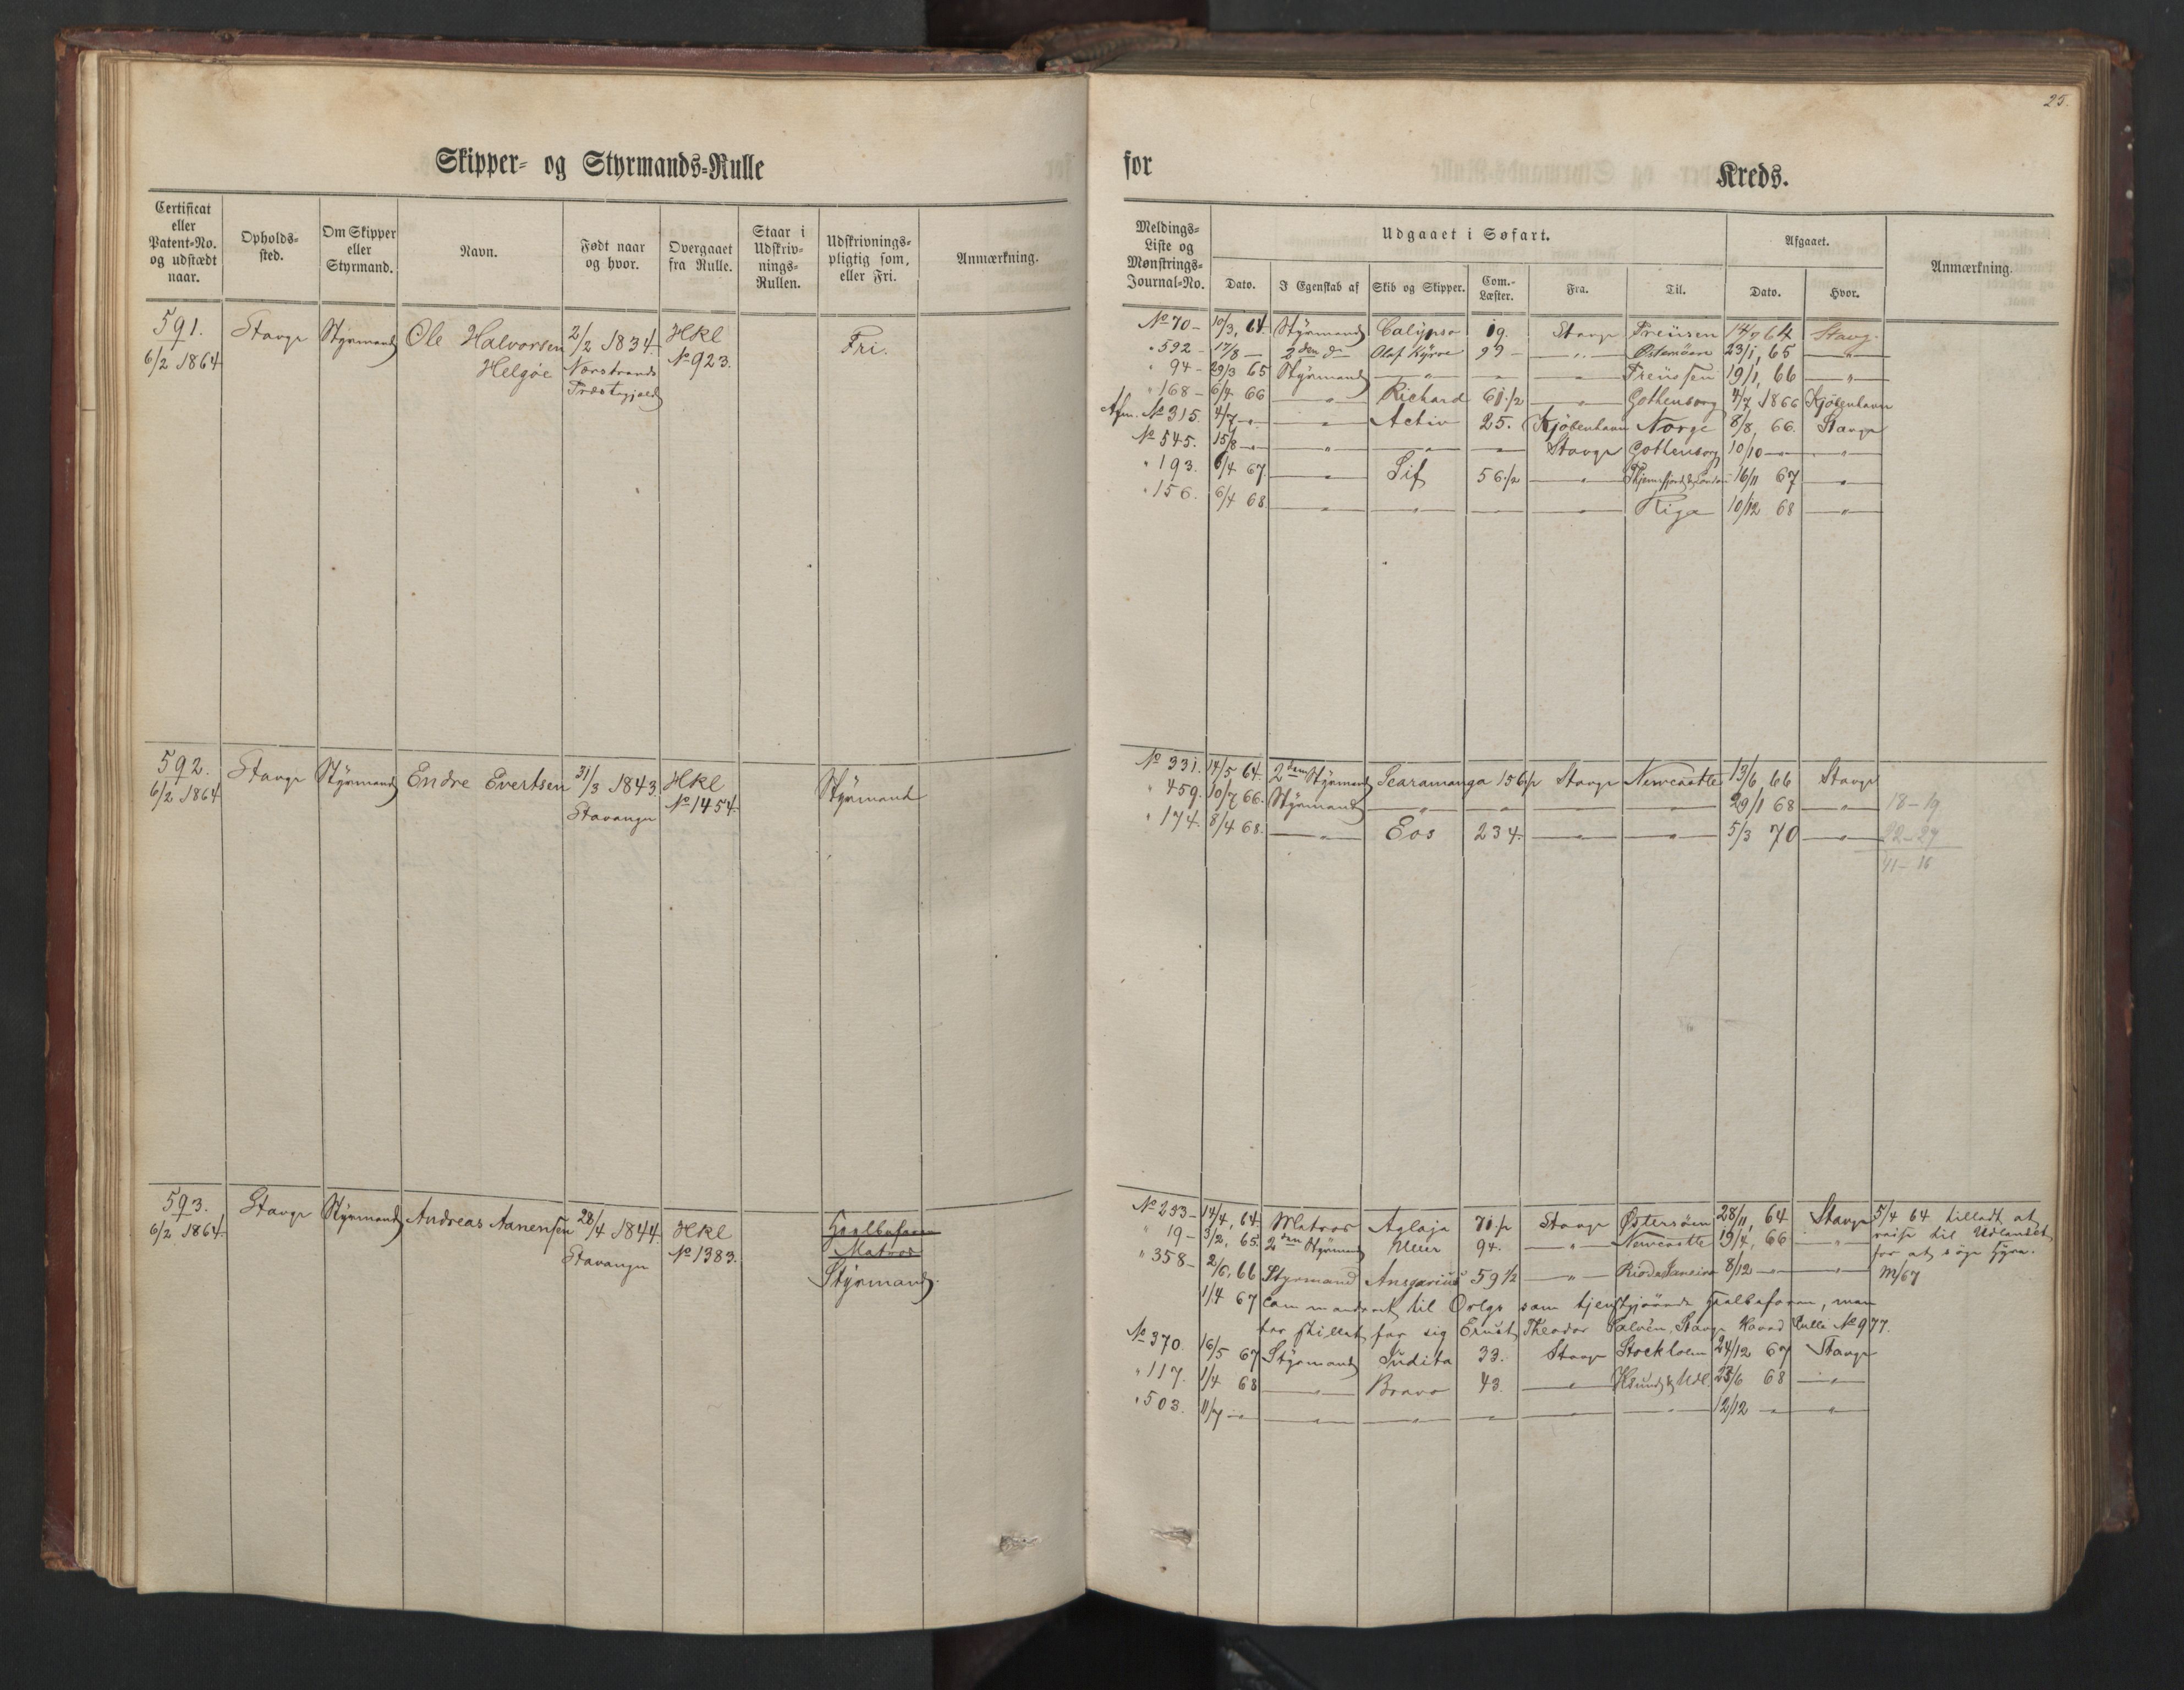 25.
Skipper- og Styrmands-Rulle
for Kreds.
Certificat eller Patent-No. og udstædt naar.
Opholds-sted.
Om Skipper eller Styrmand.
Navn.
Født naar og hvor.
Overgaaet fra Rulle.
Staar i Udskriv-nings-Rullen.
Udskrivnings-pligtig som, eller Fri.
Anmærkning.
Meldings-Liste og Mønstrings-Journal-No.
Udgaaet i Søfart.
Dato.
I Egenskab af
Skib og Skipper.
Com.-Læster.
Fra.
Til.
Afgaaet.
Dato.
Hvor.
Anmærkning.
591. Stavgr Styrmand Ole Halvorsen 2/2 1834. Hkl Fri.
6/2 1864 Helgøe Nærstrands № 923.
Præstegjeld
№ 70 - 10/3, 64. Styrmand Calypso 19. Stavgr Preusen 14/9 64 Stavg.
" 592 - 17/8 — 2den do Olaf Kyrre 99 - — " — Østersøen 23/1, 65 — " —
" 94 - 29/3 65 Styrmand — " — — — " — Preussen 19/1, 66 — " —
" 168 - 6/4 66 — " — Richard 61 1/2 — " — Gothenborg 4/7 1866 Kjöbenhavn
Afm. № 315. 4/7 — " — — " — Activ 25. Kjöbenhavn Norge 8/8, 66. Stavgr
№ 545. 15/8 — " — — " — — " — — Stavgr Gothenborg 10/10 — " — — " —
" 193. 6/4 67. — " — Sif 56 1/2 — " — 16/11 67 — " —
" 156. 6/4 68. — " — — " — — — " — Riga 10/12 68 — " —
592. Stavgr Styrmand Endre Evertsen 31/3 1843. Hkl Styrmand
6/2 1864 Stavanger № 1454.
№ 331. 14/5 64. 2den Styrmand Scaramanga 156 1/2 Stavgr Newcastle 13/6, 66 Stavgr
" 459. 10/7 66. Styrmand — " — — " — — " — — " — 29/1 68 — " — 18 - 19
" 174. 8/4 68. — " — Eos 234. — " — — " — 5/3 70 — " — 22 - 27
41 - 16
593. Stavgr Styrmand Andreas Aanensen 28/4 1844. Hkl Halvbefaren
6/2 1864. Stavanger № 1383. Matros
Styrmand.
№ 253 - 14/4, 64. Matros Aglaja 71 1/2 Stavgr Østersøen 28/11, 64 Stavgr 5/4 64 tilladt at
" 19 - 3/2, 65. 2den Styrmand 94. — " — Newcastle 19/4, 66 — " — reise til Udlandet
for at søge Hyre.
" 358 - 2/6, 66 Styrmand Ansgarius 59 1/2 — " — Rio de Janeiro 8/12 — " — — " — M/67
1/4 67 Commanderet til Orlogs som tjenstgjørende Halvbefaren, men
har stillet for sig Ernst Theodor Salvén, Stavgr Hoved Rulle № 977.
№ 370. 16/5 67 Styrmand Judita 33. Stavgr Stockholm 24/12 67 Stavgr
" 117. 1/4 68 — " — Bravo 43. — " — Ksund & Udl 23/6 68 — " —
" 503. 11/7 — " — — " — — " — — " — — " — — " — 12/12 — " — — " —